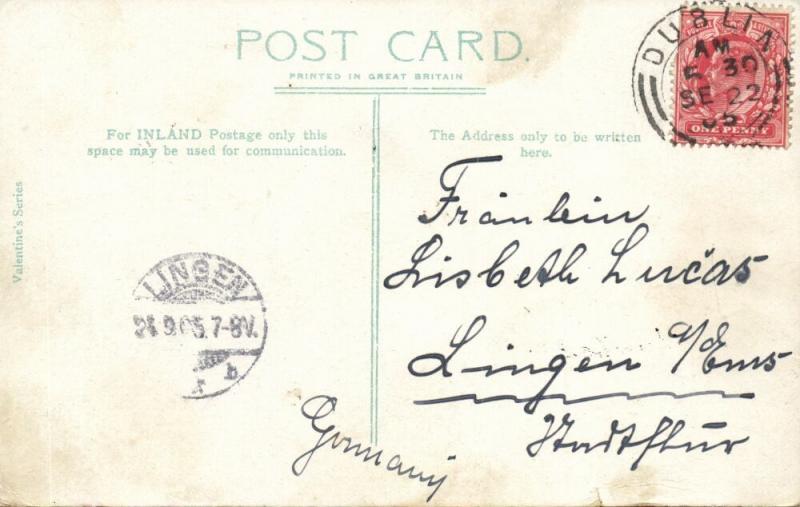 POST CARD.
PRINTED IN GREAT BRITAIN
For INLAND Postage only this
space may be used for communication.
The Address only to be written
here.
Valentine's Series
DUBLIN
AM
30
SE 22
05
ONE PENNY
Fräulein
Lisbeth Lucas
Lingen a/Ems
Germany
LINGEN
24.9.05.7-8V.
b